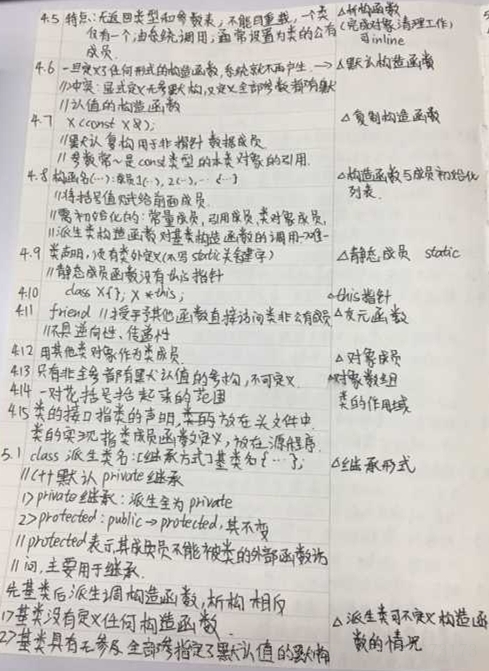 4.5 特点:无返回类型和参数表,不能自重载,一个类 △析构函数
仅有一个,由系统调用,通常设置为类的公有 (完成对象清理工作)
成员. 可inline
4.6 一旦定义了任何形式的构造函数,系统就不再产生. → △默认构造函数
//冲突:显式定义无参默构,又定义全部参数都有默
//认值的构造函数
4.7 X(const X &); △复制构造函数
//默认复构用于非指针数据成员
//参数常~是const类型的本类对象的引用.
4.8 构函名(…):成员1(…),2(…),…{…} △构造函数与成员初始化
//将括号值赋给前面成员. 列表.
//需初始化的:常量成员,引用成员,类对象成员,
//派生类构造函数对基类构造函数的调用
4.9 类声明,使有类外定义(不写static关键字) △静态成员 static
//静态成员函数没有this指针
4.10 class X{}; X *this; △this指针
4.11 friend //授予其他函数直接访问类非公有成员 △友元函数
//不具逆向性、传递性
4.12 用其他类对象作为类成员. △对象成员
4.13 只有非全参都有默认值的参构,不可定义. 对象数组
4.14 一对花括号括起来的范围 类的作用域
4.15 类的接口指类的声明,类的放在头文件中.
类的实现指类成员函数定义,放在源程序.
5.1 class 派生类名:[继承方式]基类名{…}; △继承形式
//C++默认private继承
1>private继承:派生全为private
2>protected:public→protected,其不变
//protected表示其成员不能被类的外部函数访
//问,主要用于继承.
先基类后派生调构造函数,析构相反
1>基类没有定义任何构造函数 △派生类可不定义构造函
2>基类具有无参及全部参指定了默认值的默构 数的情况